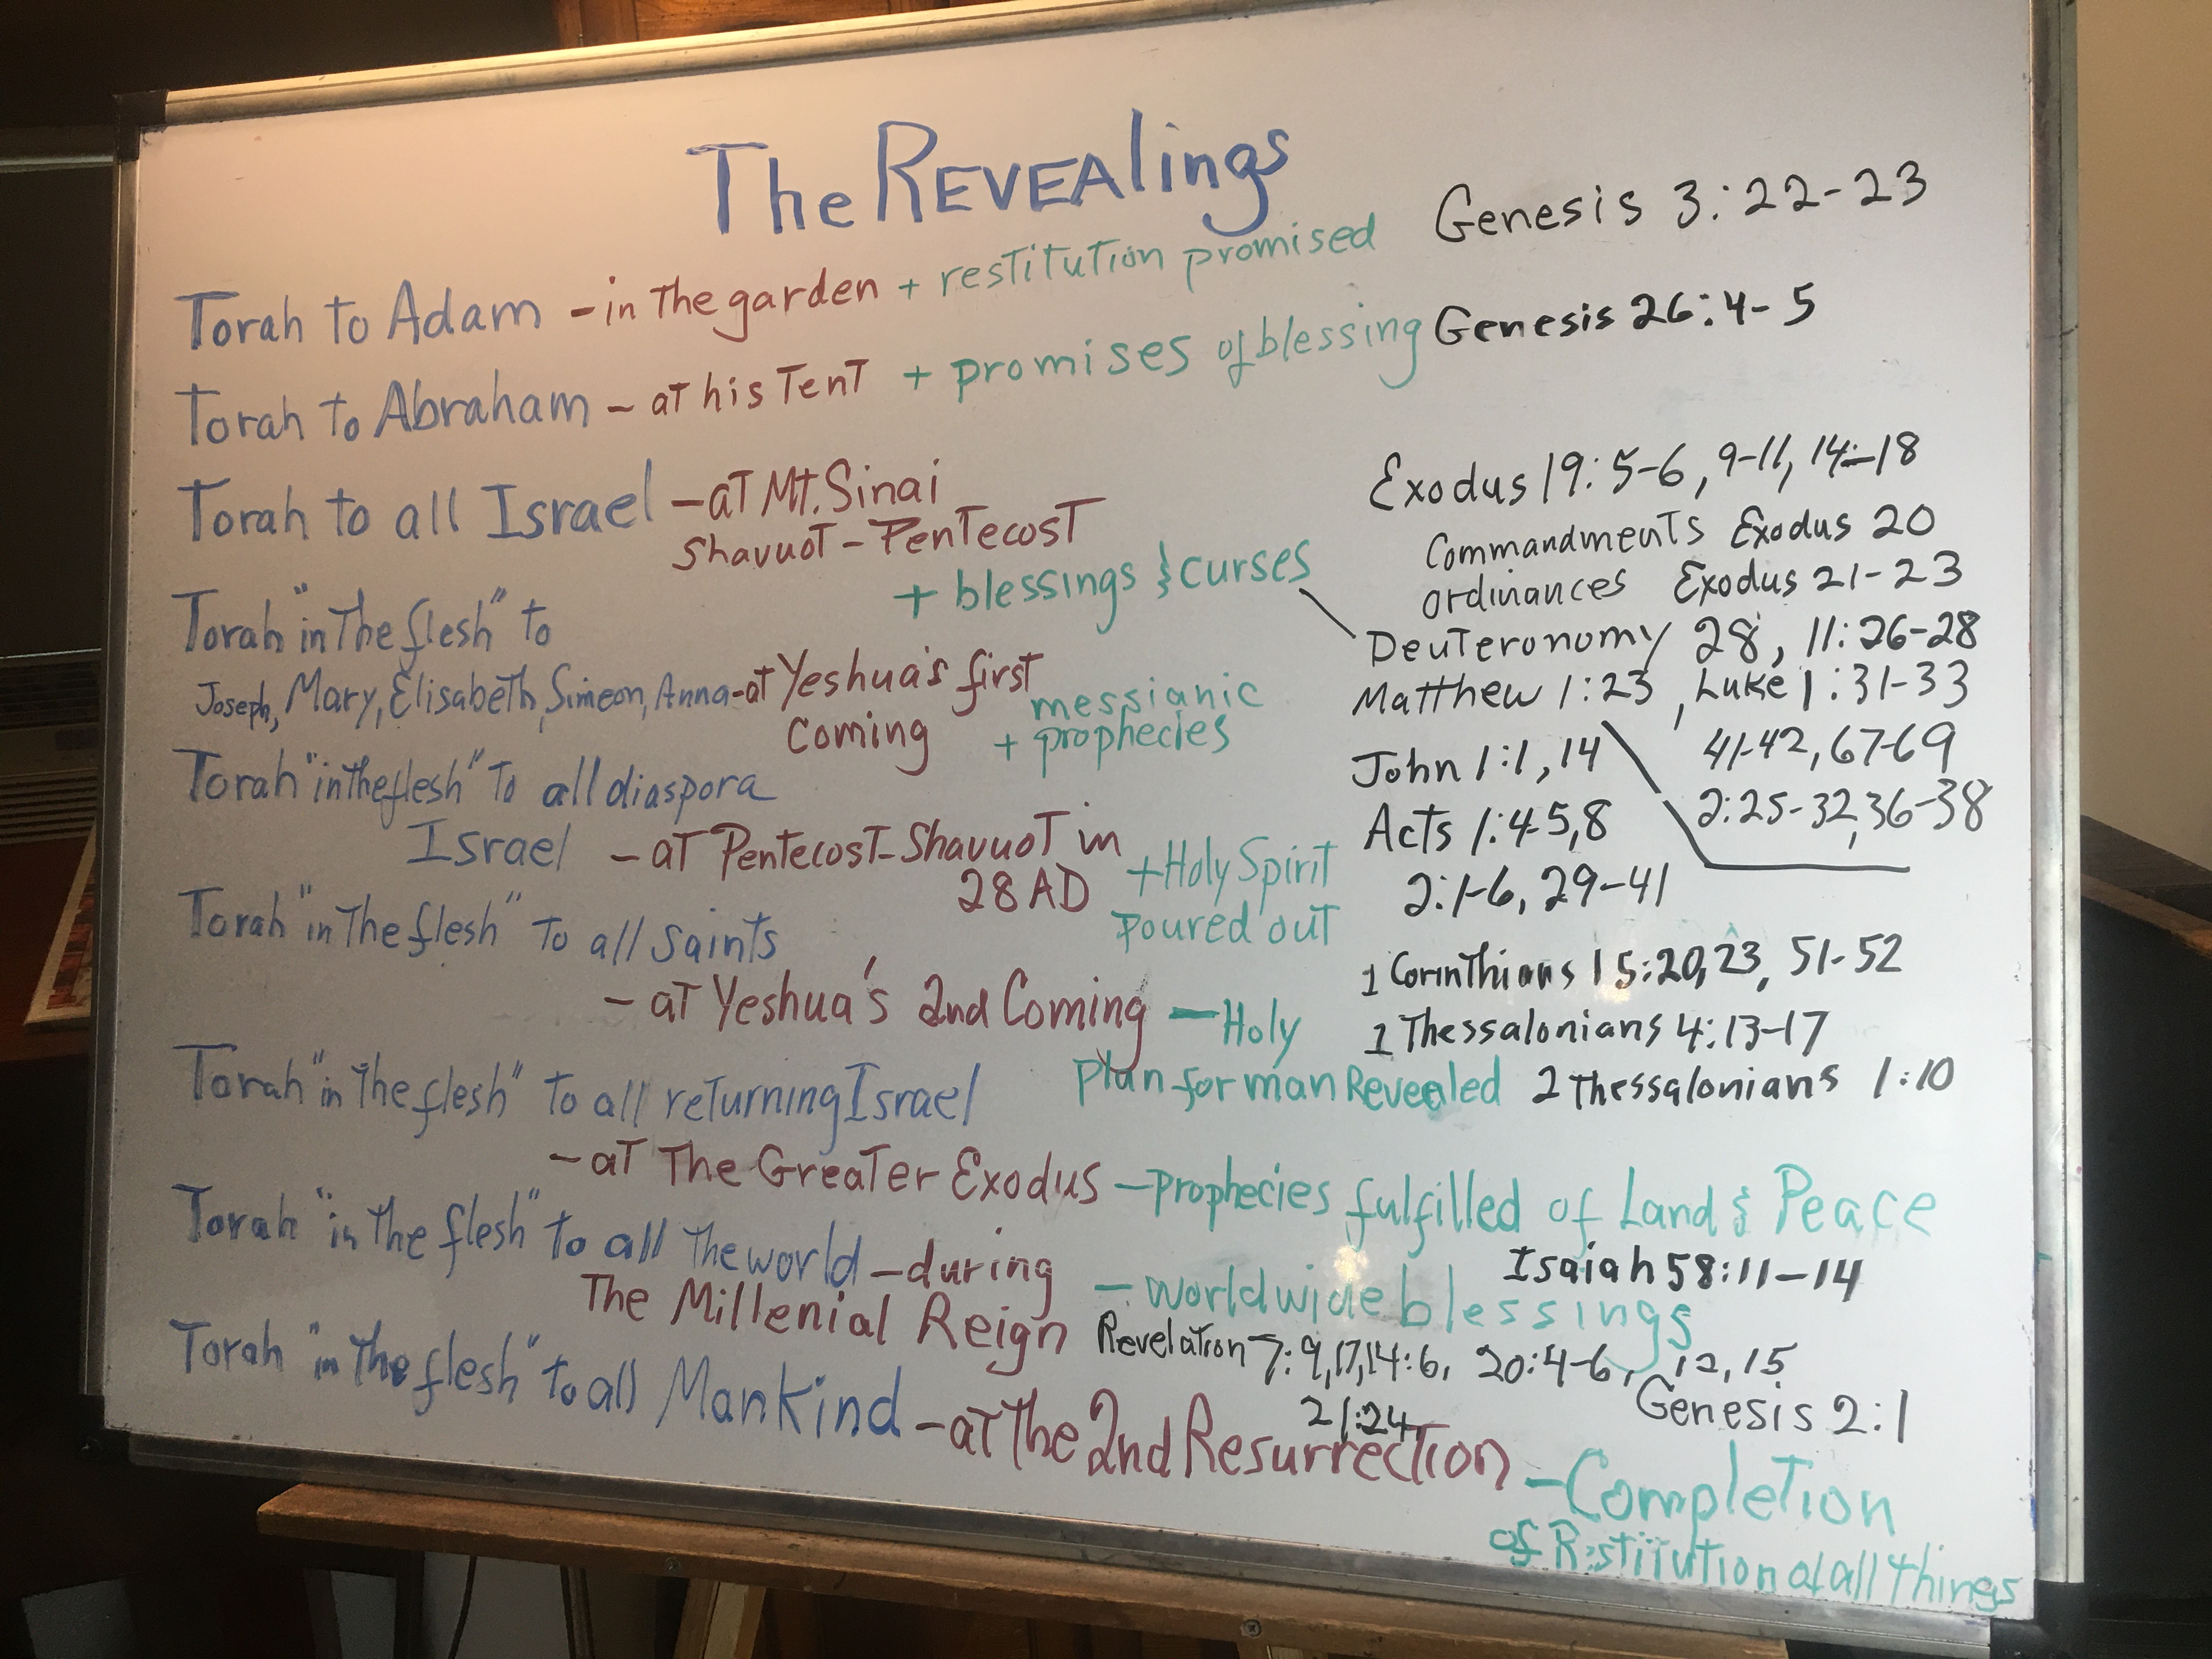 The REVEAlings
Torah to Adam - in The garden + restitution promised Genesis 3:22-23
Torah to Abraham - at his Tent + promises of blessing Genesis 26:4-5
Torah to all Israel - at Mt. Sinai Exodus 19:5-6, 9-11, 14-18
Shavuot - Pentecost
Commandments Exodus 20
+ blessings & curses
ordinances Exodus 21-23
Torah "in The flesh" to
Deuteronomy 28, 11:26-28
Joseph, Mary, Elisabeth, Simeon, Anna - at Yeshua's first
Coming
+ messianic
prophecies
Matthew 1:23, Luke 1:31-33
41-42, 67-69
2:25-32, 36-38
John 1:1, 14
Torah "in the flesh" To all diaspora
Israel - at Pentecost-Shavuot in
28 AD
+ Holy Spirit
poured out
Acts 1:4-5, 8
2:1-6, 29-41
Torah "in The flesh" To all saints
- at Yeshua's 2nd Coming - Holy
Plan for man Revealed
1 Corinthians 15:20, 23, 51-52
1 Thessalonians 4:13-17
2 Thessalonians 1:10
Torah "in The flesh" to all returning Israel
- at The Greater Exodus - Prophecies fulfilled of Land & Peace
Isaiah 58:11-14
Torah "in the flesh" to all The world - during
The Millenial Reign
- worldwide blessings
Revelation 7:9, 17, 14:6, 20:4-6, 12, 15
21:24,
Genesis 2:1
Torah "in The flesh" to all Mankind
- at The 2nd Resurrection
- Completion
of Restitution of all things